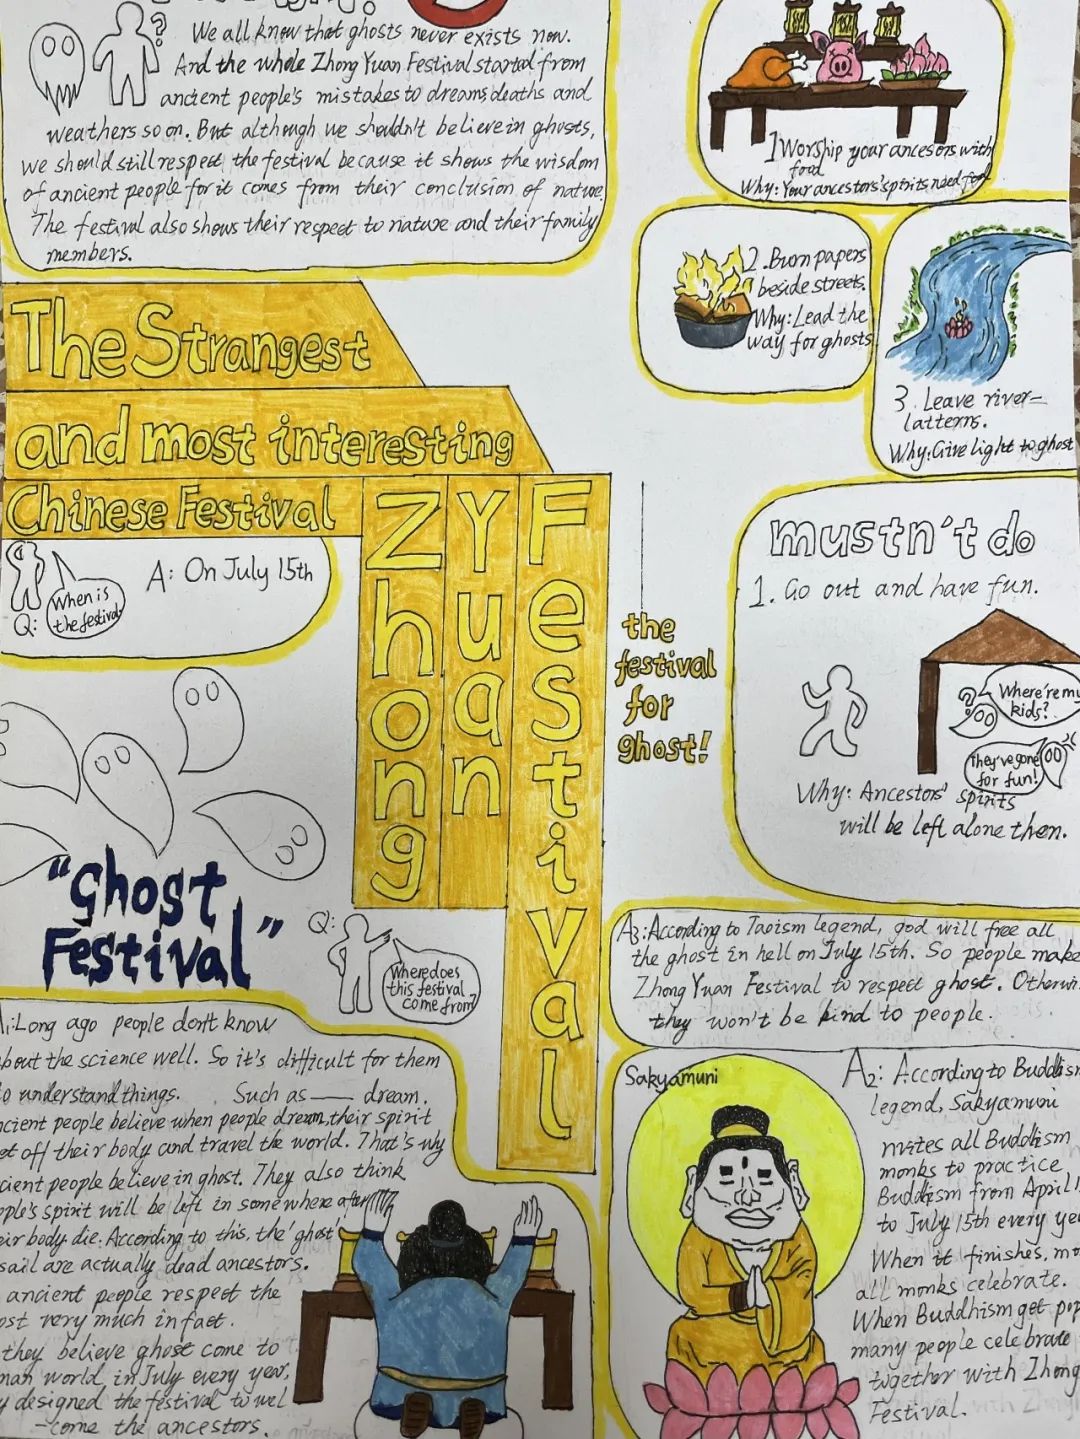 We all know that ghosts never exists now.
And the whole Zhong Yuan Festival started from
ancient people's mistakes to dreams, deaths and
weathers so on. But although we shouldn't believe in ghosts,
we should still respect the festival because it shows the wisdom
of ancient people for it comes from their conclusion of nature.
The festival also shows their respect to nature and their family
members.
1 Worship your ancesors with
food
Why: Your ancestors'spirits need food
2. Burn papers
beside streets.
Why: Lead the
way for ghosts
3. Leave river-
latterns.
Why: Give light to ghost
The Strangest
and most interesting
Chinese Festival
Zhong
Yuan
Festival
the
festival
for
ghost!
Q:
When is
the festival
A: On July 15th
mustn't do
1. Go out and have fun.
Where're my
kids?
They've gone
for fun!
Why: Ancestors' spirits
will be left alone then.
"Ghost
Festival"
Q:
Where does
this festival
come from?
A1: Long ago people don't know
about the science well. So it's difficult for them
to understand things. Such as — dream.
ancient people believe when people dream, their spirit
get off their body and travel the world. That's why
ancient people believe in ghost. They also think
people's spirit will be left in somewhere after
their body die. According to this, the 'ghost'
sail are actually dead ancestors.
ancient people respect the
ghost very much in fact.
they believe ghost come to
human world in July every year,
they designed the festival to wel
-come the ancestors.
A3: According to Taoism legend, god will free all
the ghost in hell on July 15th. So people make
Zhong Yuan Festival to respect ghost. Otherwi
they won't be kind to people.
Sakyamuni
A2: According to Buddism
legend, Sakyamuni
mates all Buddism
monks to practice
Buddism from April 1
to July 15th every ye
When it finishes, mo
all monks celebrate.
When Buddhism get pop
many people celebrate
together with Zhong
Festival.